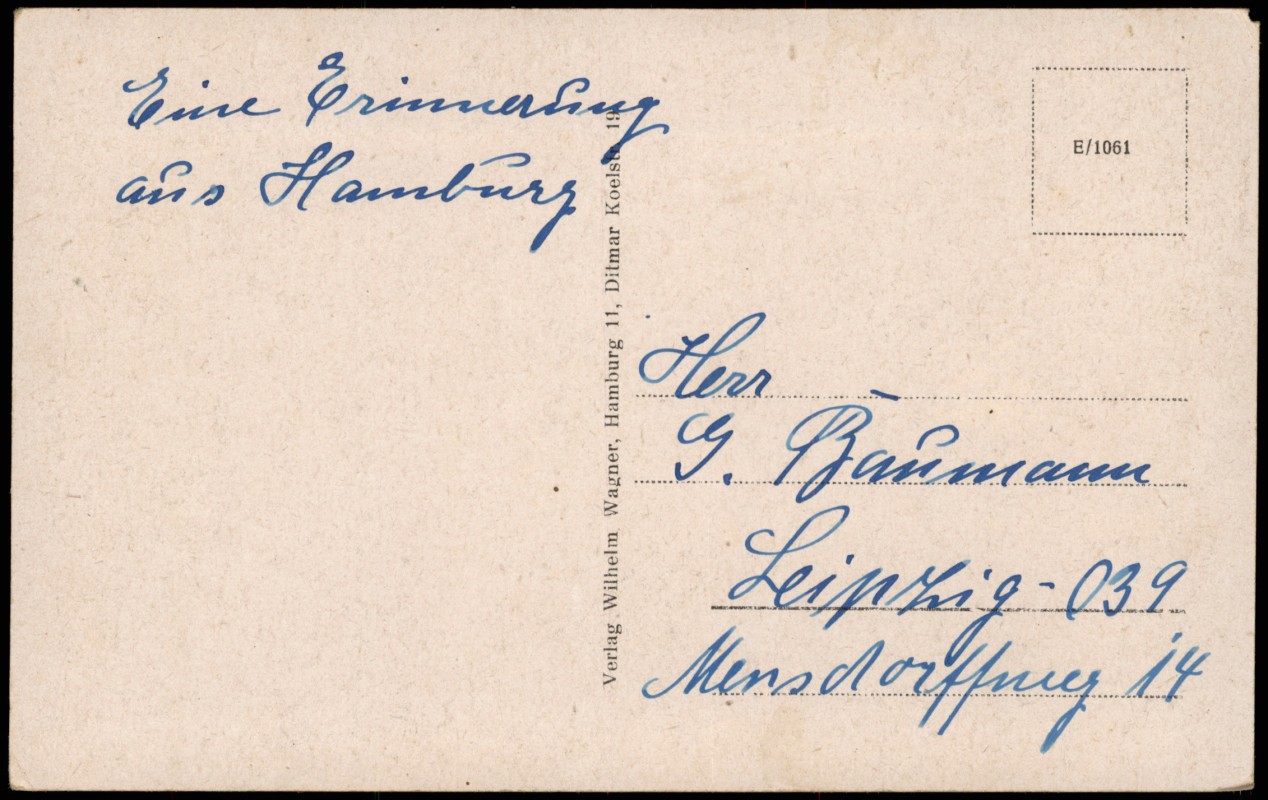 Eine Erinnerung
aus Hamburg
Verlag Wilhelm Wagner, Hamburg 11, Ditmar Koelstr. 19
E/1061
Herr
G. Baumann
Leipzig - O39
Mensdorffweg 14